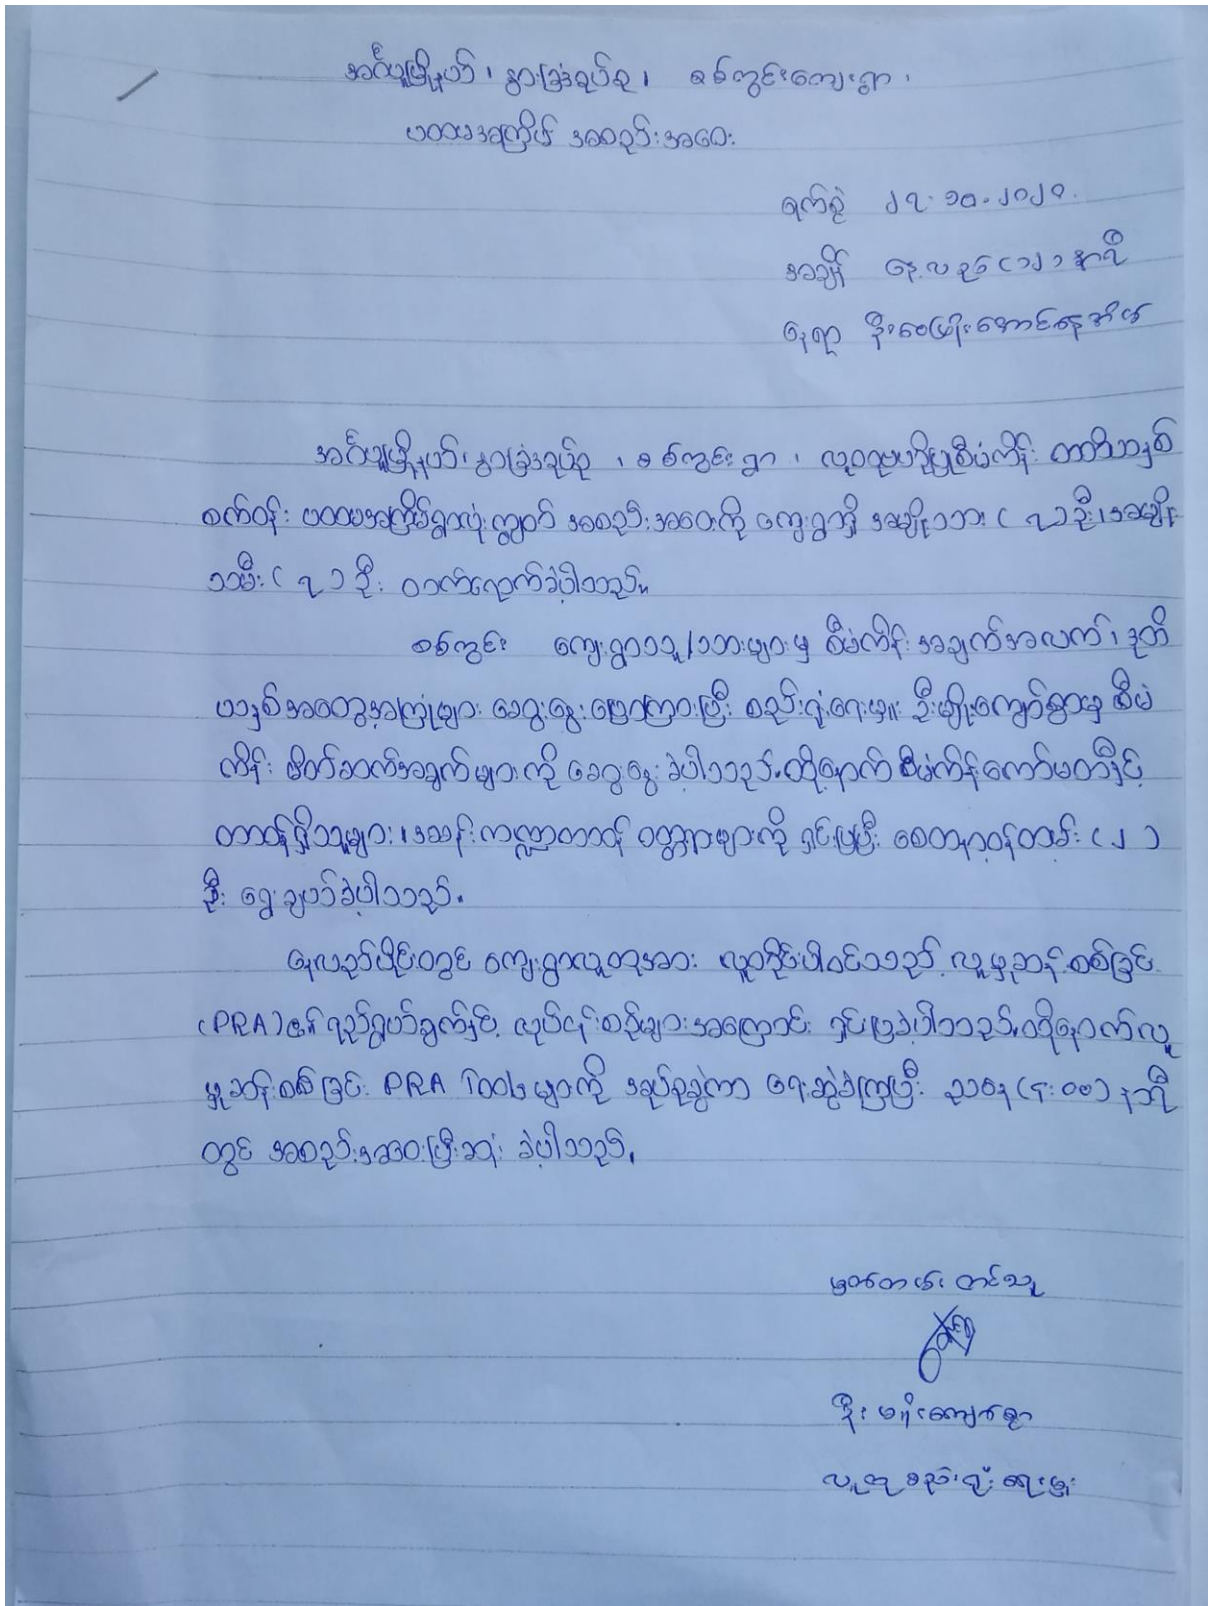 အင်္ဂပူမြို့နယ်၊ နွားခြံအုပ်စု၊ စစ်ကွင်းကျေးရွာ၊
ပထမအကြိမ် အစည်းအဝေး
ရက်စွဲ ၂၇.၁၀.၂၀၂၀.
အချိန် နေ့လည် (၁၂) နာရီ
နေရာ ဦးဝေဖြိုးအောင်နေအိမ်
နွားခြံအုပ်စု၊ စစ်ကွင်းရွာ၊ လူထုဗဟိုပြုစီမံကိန်း တတိယနှစ်
စက်ဝန်း ပထမအကြိမ်ရွာလုံးကျွတ် အစည်းအဝေးကို ကျေးရွာရှိ အမျိုးသား ( ၇ ) ဦး၊ အမျိုး
သမီး ( ၇ ) ဦး တက်ရောက်ခဲ့ပါသည်။
စစ်ကွင်း ကျေးရွာသူ/သားများမှ စီမံကိန်း အချက်အလက်၊ ဒုတိ
ယနှစ်အတွေ့အကြုံများ ဆွေးနွေးပြောကြားပြီး စည်းရုံးရေးမှူး ဦးမျိုးကျော်စွာမှ စီမံ
ကိန်း မိတ်ဆက်အချက်များကို ဆွေးနွေးခဲ့ပါသည်။ ထို့နောက် စီမံကိန်းကော်မတီနှင့်
တာဝန်ရှိသူများ၊ အခန်းကဏ္ဍတာဝန် ဝတ္တရားများကို ရှင်းပြပြီး စေတနာ့ဝန်ထမ်း (၂)
ဦး ရွေးချယ်ခဲ့ပါသည်။
နေ့လည်ပိုင်းတွင် ကျေးရွာလူထုအား လူတိုင်းပါဝင်သည့် လူမှုဆန်းစစ်ခြင်း
(PRA)၏ ရည်ရွယ်ချက်နှင့် လုပ်ငန်းစဉ်များအကြောင်း ရှင်းပြခဲ့ပါသည်။ ထို့နောက် လူ
မှုဆန်းစစ်ခြင်း PRA Tools များကို အုပ်စုခွဲကာ ရေးဆွဲခဲ့ကြပြီး ညနေ (၄:၀၀) နာရီ
တွင် အစည်းအဝေးပြီးဆုံးခဲ့ပါသည်။
မှတ်တမ်းတင်သူ
ဦးမျိုးကျော်စွာ
လူထုစည်းရုံးရေးမှူး